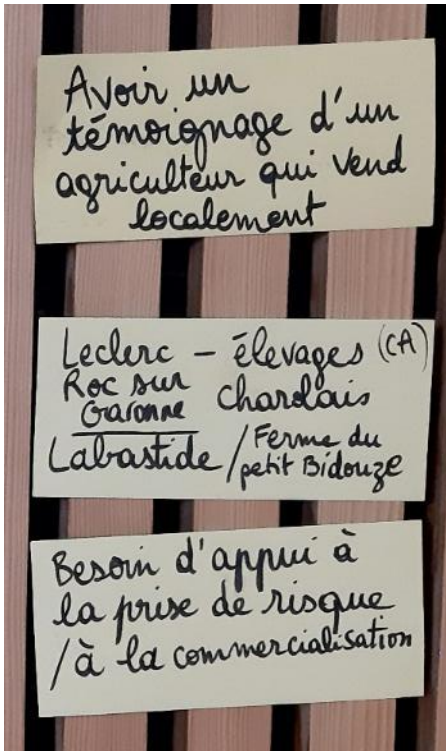 Avoir un
témoignage d'un
agriculteur qui vend
localement
Leclerc – élevages (CA)
Roc sur
Garonne charolais
Labastide / Ferme du
petit Bidouze
Besoin d'appui à
la prise de risque
/ à la commercialisation